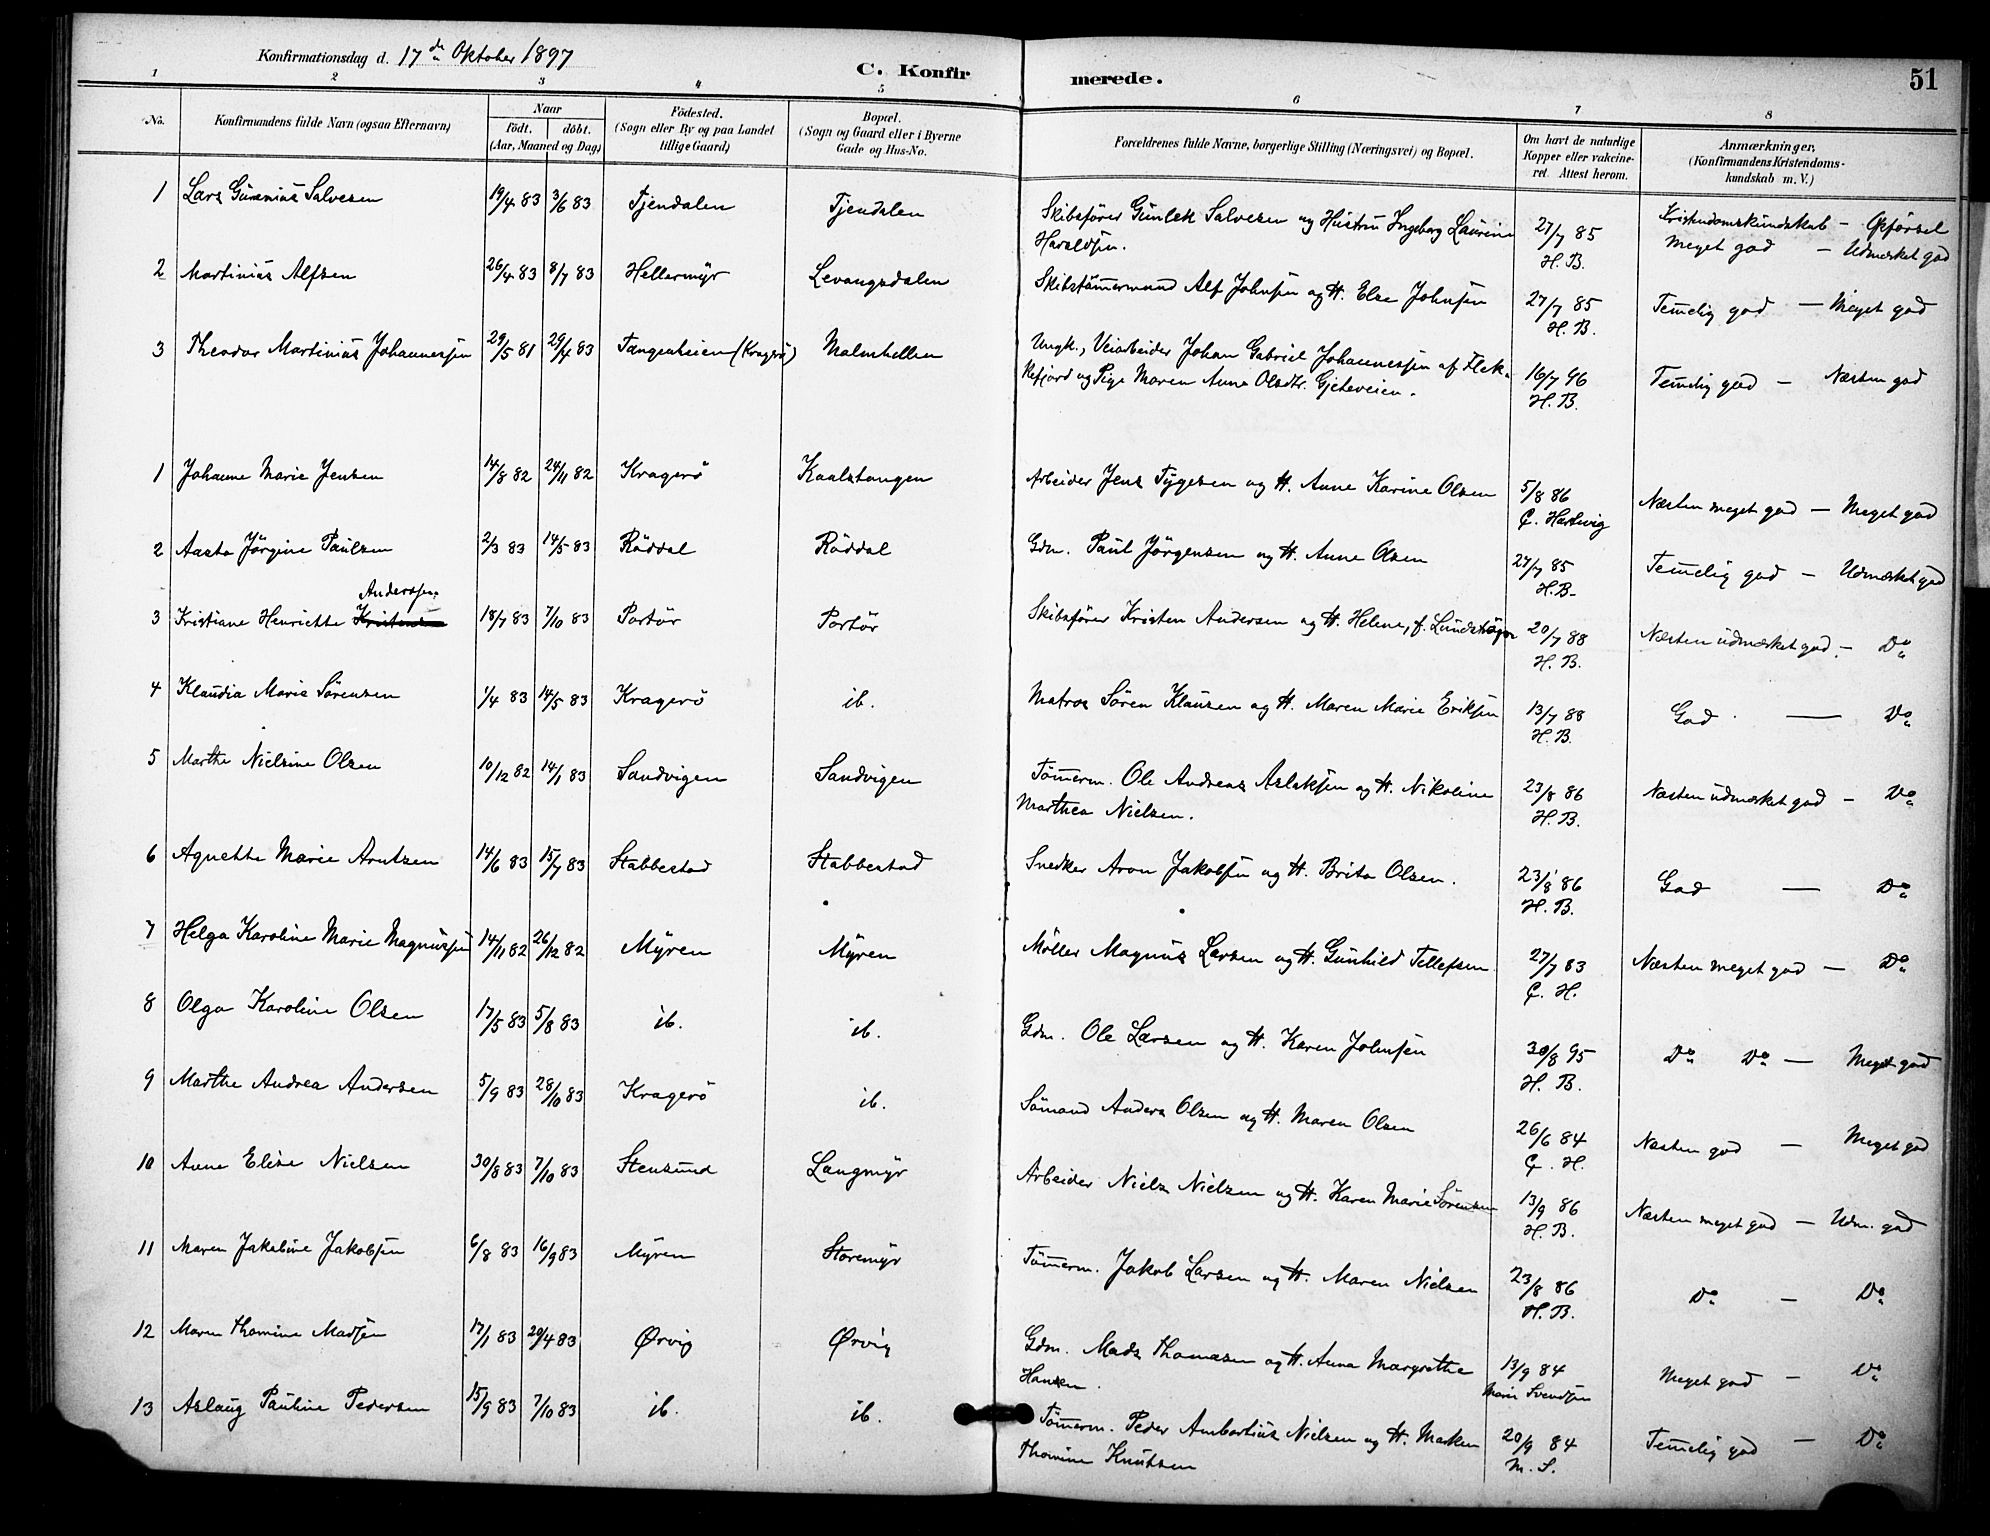 Konfirmationsdag d. 17de Oktober 1897
C. Konfirmerede.
51
1 2 3 4 5 6 7 8
No. Konfirmandens fulde Navn (ogsaa Efternavn) Naar födt. döbt. (Aar, Maaned og Dag) Födested. (Sogn eller By og paa Landet tillige Gaard) Bopæl. (Sogn og Gaard eller i Byerne Gade og Hus-No. Forældrenes fulde Navne, borgerlige Stilling (Næringsvei) og Bopæl. Om havt de naturlige Kopper eller vakcineret. Attest herom. Anmærkninger, (Konfirmandens Kristendomskundskab m. V.)
Kristendomskundskab – Opførsel
1 Lars Gunnius Salvesen 19/4 83 3/6 83 Tjendalen Tjendalen Skibsfører Gunlek Salvesen og Hustru Ingeborg Laurine Haraldsen. 27/7 85 H. B. Meget god – Udmærket god
2 Martinius Alfsen 26/4 83 8/7 83 Hellermyr Levangsdalen Skibstømermand Alf Johnsen og H. Else Johnsen 27/7 85 H. B. Temelig god – Meget god
3 Theodor Martinius Johannessen 29/5 81 29/4 83 Tangenheien (Kragerö) Malmhellen Ungk., Veiarbeider Johan Gabriel Johannessen af Flekkefjord og Pige Maren Anne Olsdtr. Gjeteveien. 16/7 96 H. B. Temelig god – Næsten god
1 Johanne Marie Jensen 14/8 82 24/11 82 Kragerö Kaalstangen Arbeider Jens Tygesen og H. Anne Karine Olsen 5/8 86 C. Hartvig Næsten meget god – Meget god
2 Aasta Jörgine Paulsen 2/3 83 14/5 83 Röddal Röddal Gdm. Paul Jörgensen og H. Anne Olsen 27/7 85 H. B. Temelig god – Udmærket god
3 Kristiane Henriette Anderssen 18/7 83 7/10 83 Portör Portör Skibsfører Kristen Andersen og H. Helene, f. 20/7 88 H. B. Næsten udmærket god – Do
4 Klaudia Marie Sörensen 1/4 83 14/5 83 Kragerö ib. Matros Sören Klausen og H. Maren Marie Eriksen 13/7 88 H. B. God – Do
5 Marthe Nielsine Olsen 10/12 82 14/1 83 Sandvigen Sandvigen Tömerm. Ole Andreas Aslaksen og H. Nikoline Marthea Nielsen. 23/8 86 H. B. Næsten udmærket god – Do
6 Agnethe Marie Arntzen 14/6 83 15/7 83 Stabbestad Stabbestad Snedker Aron Jakobsen og H. Brita Olsen. 23/8 86 H. B. God – Do
7 Helga Karoline Marie Magnussen 14/11 82 26/12 82 Myren Myren Möller Magnus Larsen og H. Gunhild Tellefsen 27/7 83 C. H. Næsten meget god – Do
8 Olga Karoline Olsen 17/5 83 5/8 83 ib. ib. Gdm. Ole Larsen og H. Karen Johnsen 30/8 95 H. B. Do Do – Meget god
9 Marthe Andrea Andersen 5/9 83 28/10 83 Kragerö ib. Sömand Anders Olsen og H. Maren Olsen 26/6 84 C. H. Næsten god – Meget god
10 Anne Elise Nielsen 30/8 83 7/10 83 Stensund Langmyr Arbeider Niels Nielsen og H. Karen Marie Sörensen 13/9 86 H. B. Næsten meget god – Udm. god
11 Maren Jakobine Jakobsen 6/8 83 16/9 83 Myren Storemyr Tömerm. Jakob Larsen og H. Maren Nielsen 23/8 86 H. B. Do – Do
12 Maren Thomine Madsen 17/1 83 29/4 83 Ørvig Ørvig Gdm. Mads Thomasen og H. Anna Margrethe Hansen. 13/9 84 Marie Svendsen Meget god – Do
13 Aslaug Pauline Pedersen 15/9 83 7/10 83 ib. ib. Tömerm. Peder Ambortius Nielsen og H. Marken Thomine Knutsen 20/9 84 M. S. Temelig god – Do